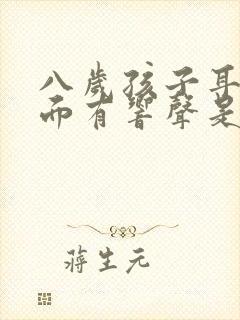 八歲孩子耳
而有響聲是
蔣生元